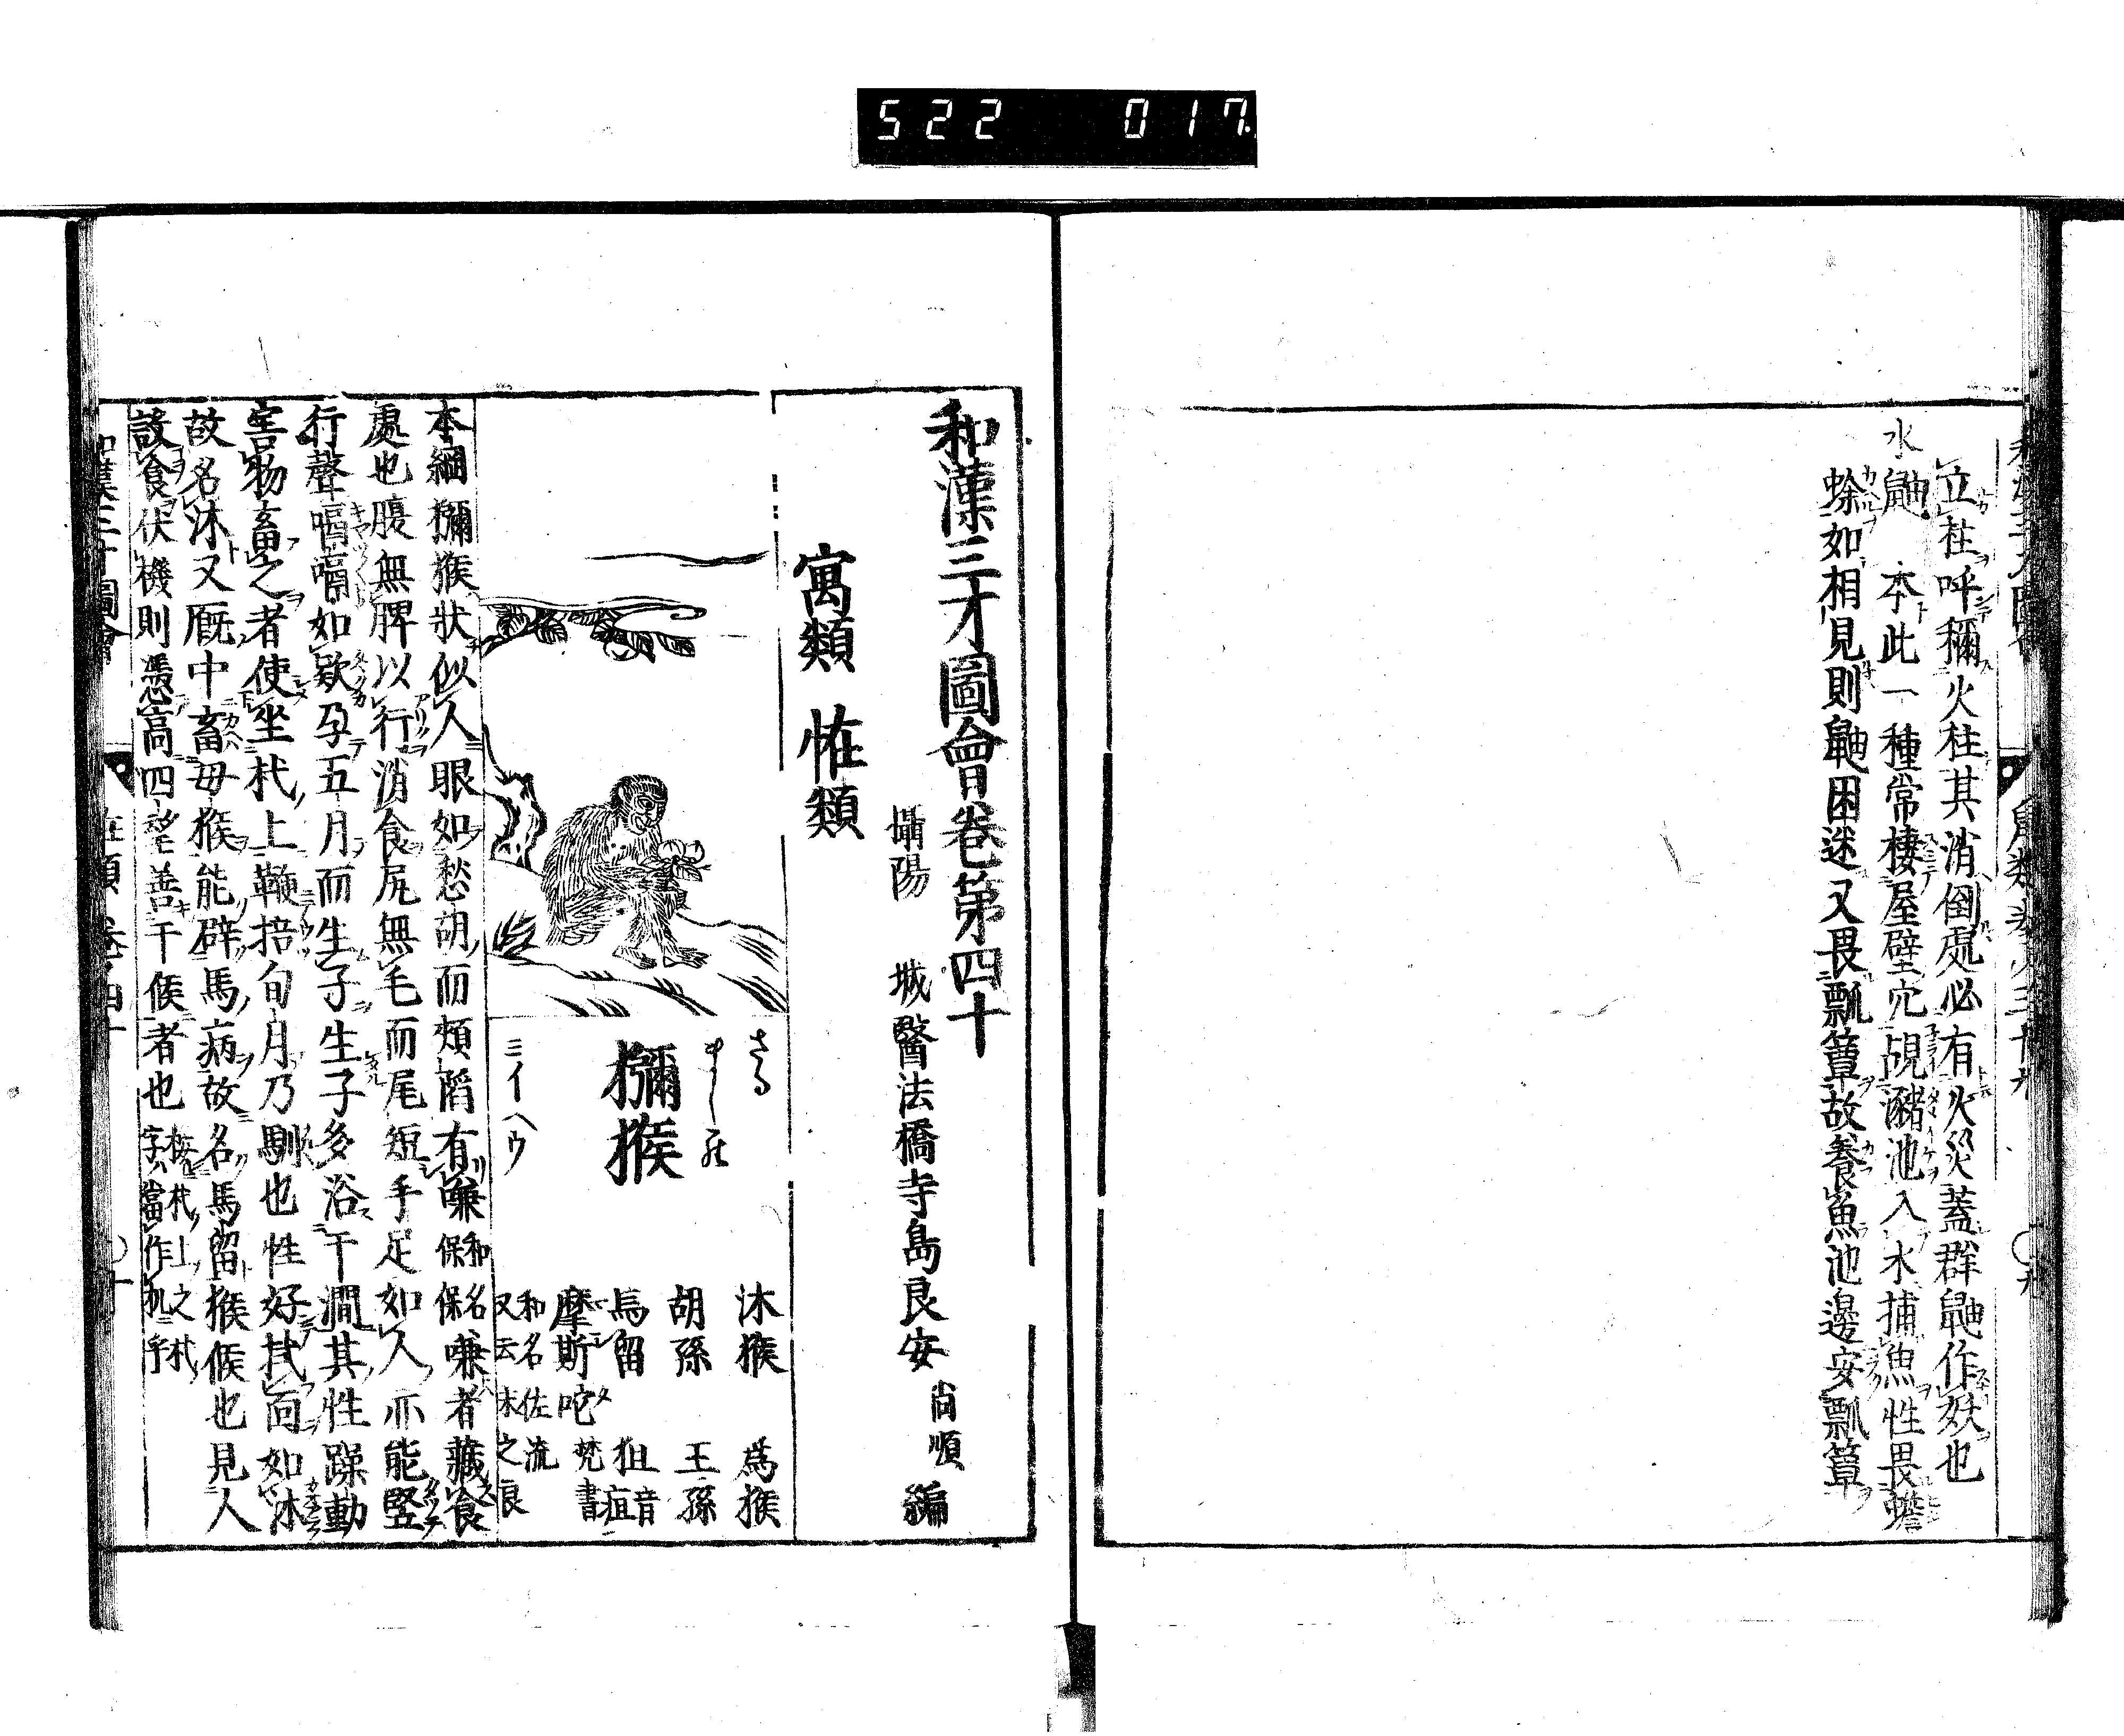 522 017
立柱呼穪火柱其消倒處必有火災蓋群鼬作妖也
水鼬 本此一種常棲屋壁穴覘瀦池入水捕魚性畏蟾
蜍如相見則鼬困迷又畏瓢簞故養魚池邊安瓢簞
和漢三才圖會卷第四十
攝陽 城醫法橋寺島良安尚順編
寓類 恠類
さる
獼猴
ミイ ヘウ
沐猴 爲猴
胡孫 王孫
馬留 狙音疽
摩斯咤梵書
和名佐流
又云末之良
本綱獼猴狀似人眼如愁胡而頰陷有嗛和名保保嗛者藏食
處也腹無脾以行消食尻無毛而尾短手足如人亦能竪
行聲嗝嗝如欬孕五月而生子生子多浴于澗其性躁動
害物畜之者使坐杙上鞭掊旬月乃馴也性好拭面如沐
故名沐又廐中畜母猴能辟馬病故名馬留猴候也見人
設食伏機則憑高四望善于候者也按杙上之杙字當作杌乎